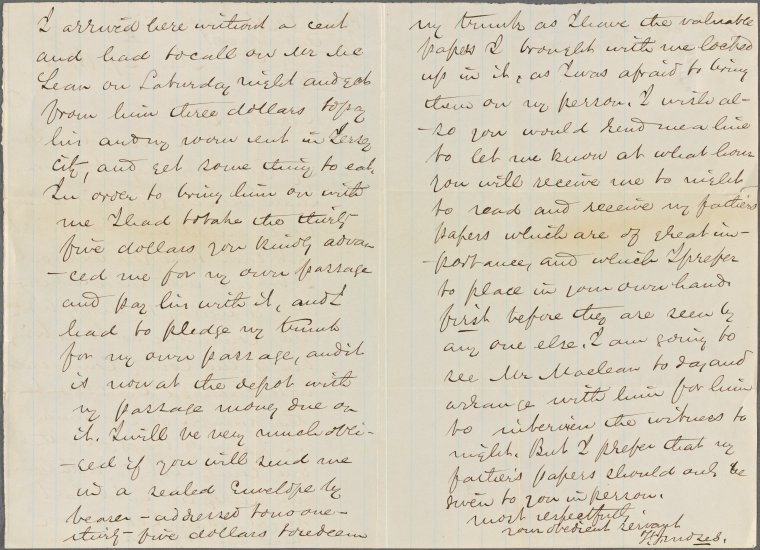 I arrived here without a cent
and had to call on Mr Mc
Lean on Saturday night and get
from him three dollars to pay
his and my room rent in Jersey
City, and get some thing to eat.
In order to bring him on with
me I had to take the thirty
five dollars you kindly advan
-ced me for my own passage
and pay his with it, and I
had to pledge my trunk
for my own passage, and it
is now at the depot with
my passage money due on
it. I will be very much obli-
-ged if you will send me
in a sealed envelope by
bearer - addressed to no one -
thirty-five dollars to redeem
my trunk as I have the valuable
papers I brought with me locked
up in it, as I was afraid to bring
them on my person. I wish al-
-so you would send me a line
to let me know at what hour
you will receive me to night,
to read and receive my father's
papers which are of great im-
-portance, and which I prefer
to place in your own hands
first before they are seen by
any one else. I am going to
see Mr Maclean to day, and
arrange with him for him
to interview the witness to
night. But I prefer that my
father's papers should only be
given to you in person.
most respectfully
your obedient servant